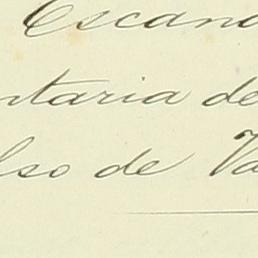 Escand
ntaria de
lso de Va